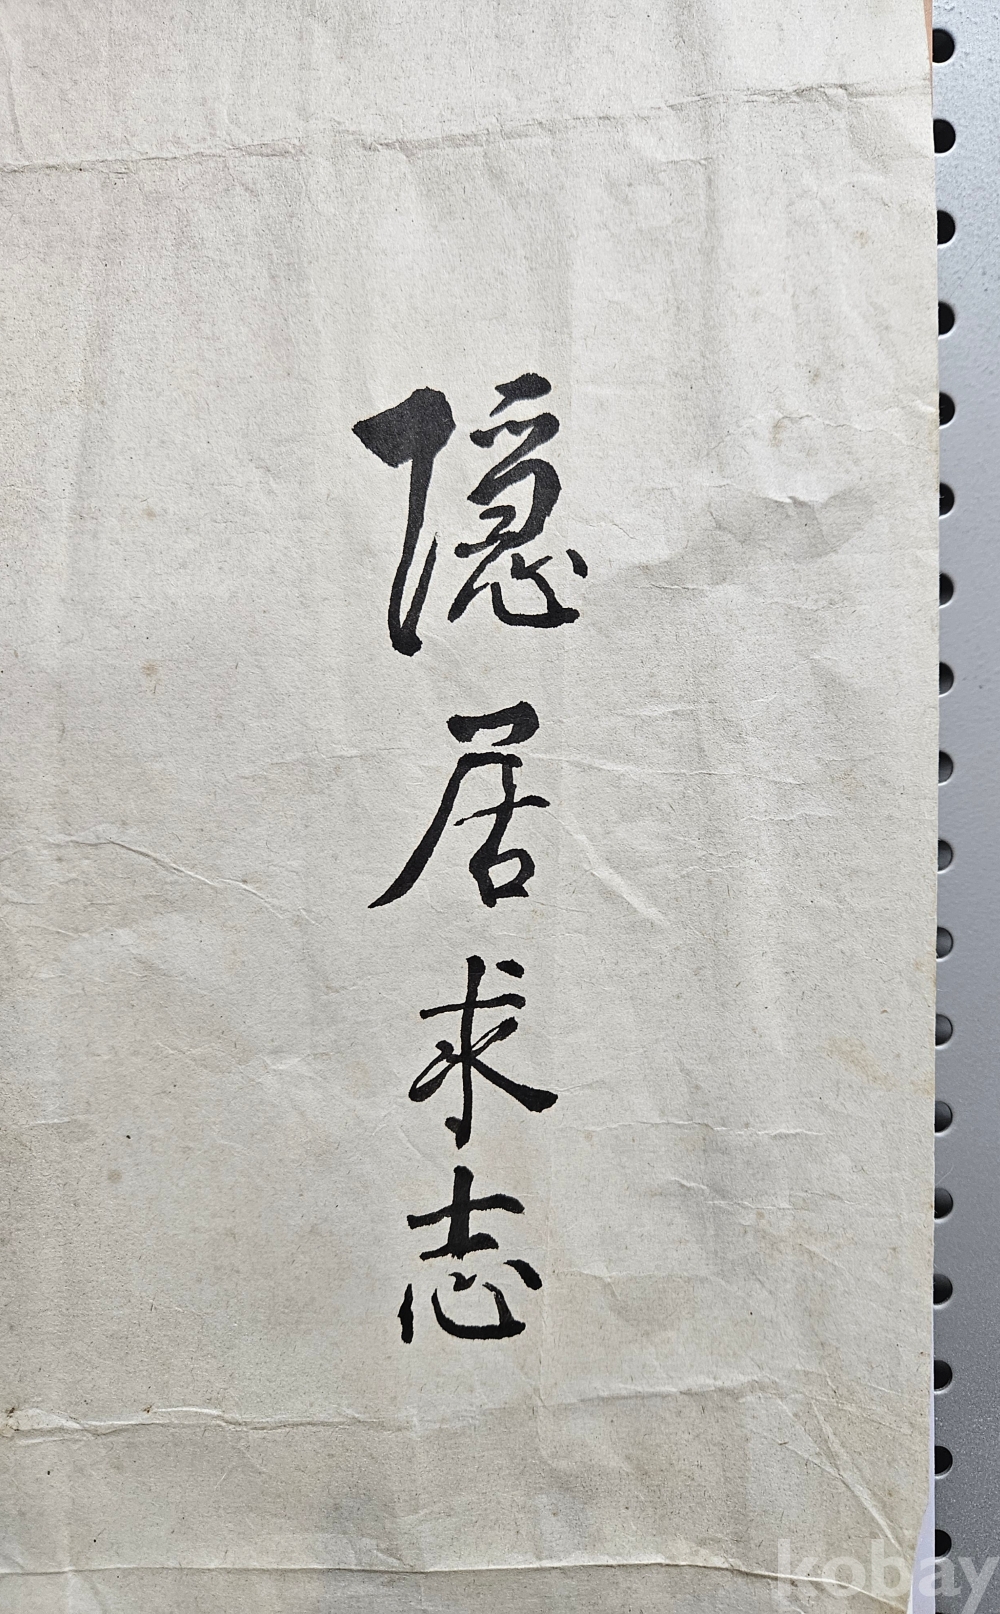 隱居求志
kobay